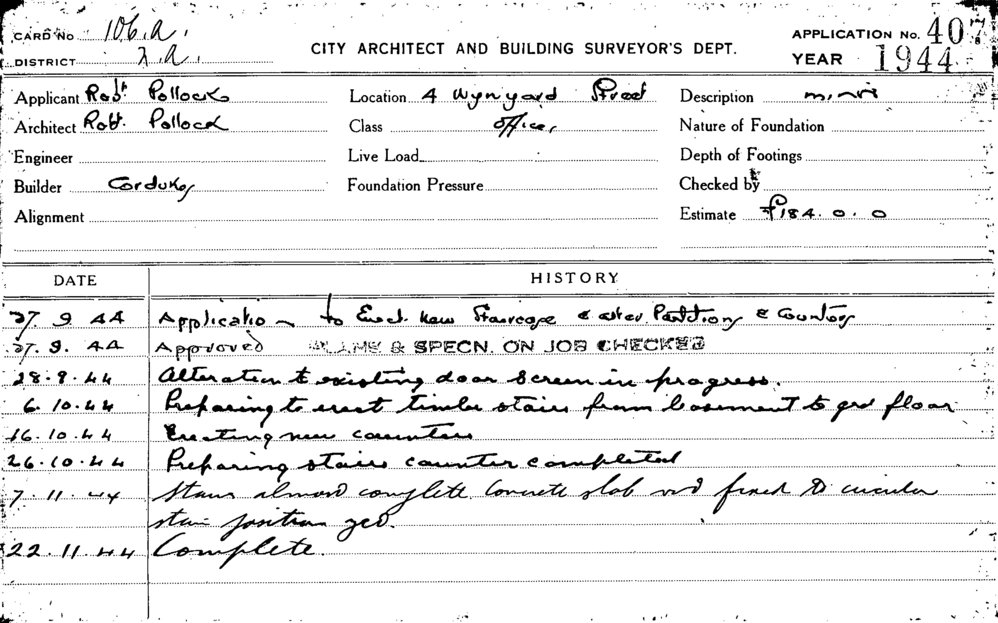 CARD No 106.A.
DISTRICT 2.A.
CITY ARCHITECT AND BUILDING SURVEYOR'S DEPT.
APPLICATION No. 407
YEAR 1944
Applicant Robt Pollock
Location 4 Wynyard Street
Description minor
Architect Robt. Pollock
Class offices
Nature of Foundation
Engineer
Live Load
Depth of Footings
Builder Cordukes
Foundation Pressure
Checked by
Alignment
Estimate £184.0.0
DATE HISTORY
27.9.44 Application to Erect New Staircase & alter Partitions & Counters
27.9.44 Approved PLANS & SPECN. ON JOB CHECKED
28.9.44 Alteration to existing door screen in progress.
6.10.44 Preparing to erect timber stairs from basement to grd floor
16.10.44 Erecting new counters
26.10.44 Preparing stairs counter completed
7.11.44 Stairs almost complete. Concrete slab not fixed to circular
stair position yet.
22.11.44 Complete.